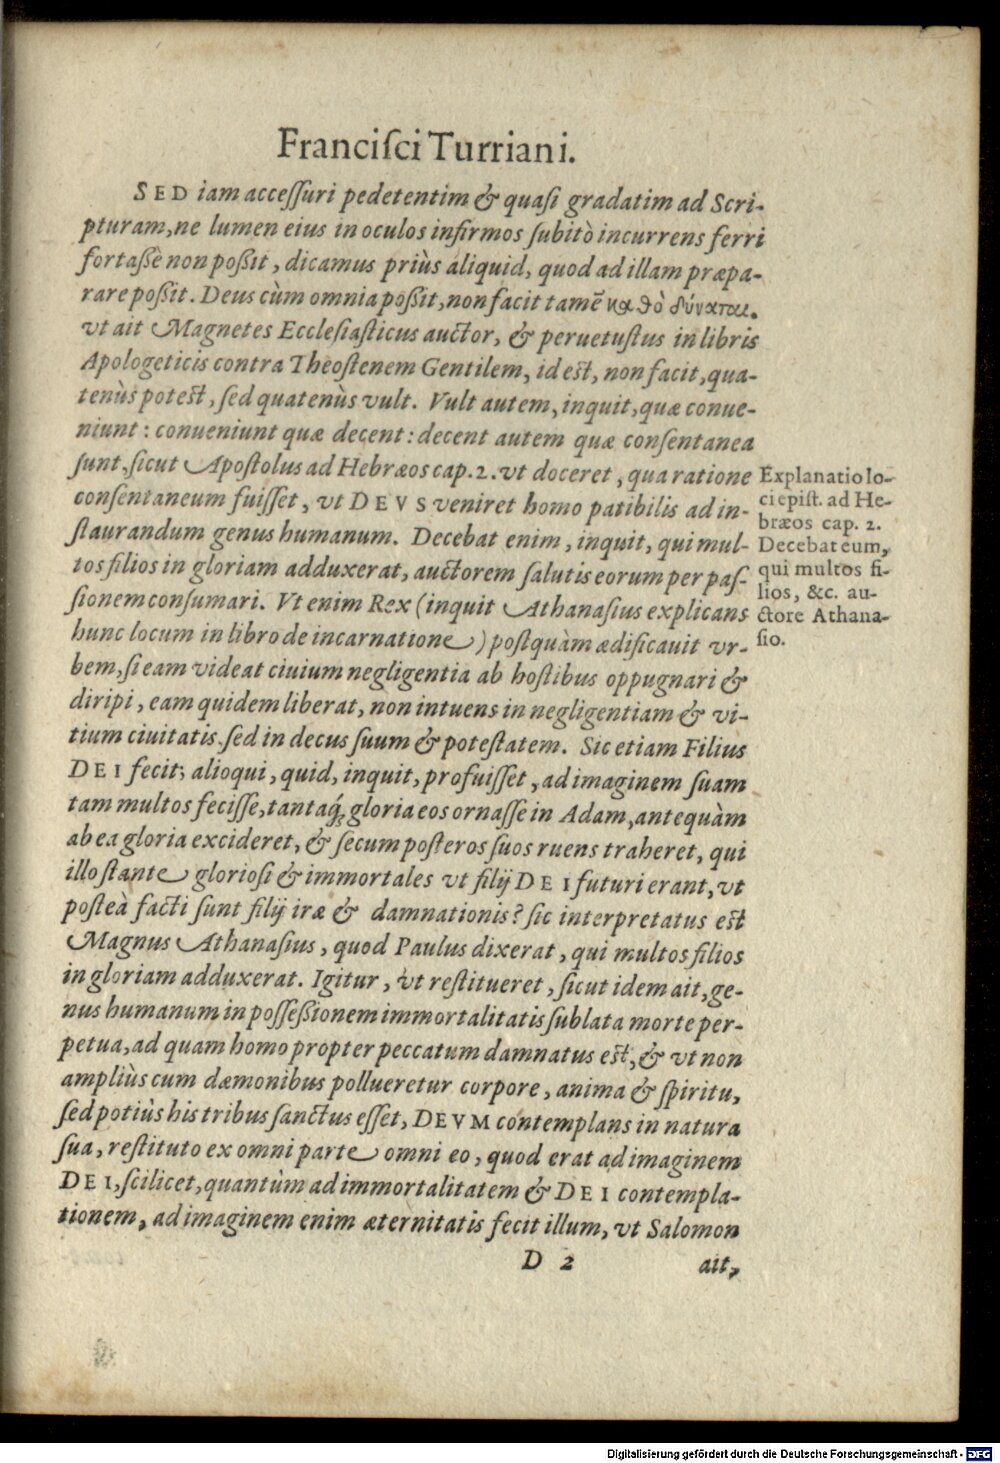 Franciſci Turriani.
SED iam acceſſuri pedetentim & quaſi gradatim ad Scri-
pturam, ne lumen eius in oculos infirmos ſubitò incurrens ferri
fortaſſè non poßit, dicamus priùs aliquid, quod ad illam præpa-
rare poßit. Deus cùm omnia poßit, non facit tamē καθὸ δύναται.
vt ait Magnetes Eccleſiaſticus auctor, & peruetuſtus in libris
Apologeticis contra Theoſtenem Gentilem, id eſt, non facit, qua-
tenùs poteſt, ſed quatenùs vult. Vult autem, inquit, quæ conue-
niunt: conueniunt quæ decent: decent autem quæ conſentanea
ſunt, ſicut Apoſtolus ad Hebræos cap. 2. vt doceret, qua ratione
conſentaneum fuiſſet, vt DEVS veniret homo patibilis ad in-
ſtaurandum genus humanum. Decebat enim, inquit, qui mul-
tos filios in gloriam adduxerat, auctorem ſalutis eorum per paſ-
ſionem conſumari. Vt enim Rex (inquit Athanaſius explicans
hunc locum in libro de incarnatione) poſtquàm ædificauit vr-
bem, ſi eam videat ciuium negligentia ab hoſtibus oppugnari &
diripi, eam quidem liberat, non intuens in negligentiam & vi-
tium ciuitatis, ſed in decus ſuum & poteſtatem. Sic etiam Filius
DEI fecit; alioqui, quid, inquit, profuiſſet, ad imaginem ſuam
tam multos feciſſe, tantaq́; gloria eos ornaſſe in Adam, antequàm
ab ea gloria excideret, & ſecum poſteros ſuos ruens traheret, qui
illo ſtante glorioſi & immortales vt filij DEI futuri erant, vt
poſteà facti ſunt filij iræ & damnationis? ſic interpretatus eſt
Magnus Athanaſius, quod Paulus dixerat, qui multos filios
in gloriam adduxerat. Igitur, vt reſtitueret, ſicut idem ait, ge-
nus humanum in poſſeßionem immortalitatis ſublata morte per-
petua, ad quam homo propter peccatum damnatus eſt, & vt non
ampliùs cum dæmonibus pollueretur corpore, anima & ſpiritu,
ſed potiùs his tribus ſanctus eſſet, DEVM contemplans in natura
ſua, reſtituto ex omni parte omni eo, quod erat ad imaginem
DEI, ſcilicet, quantùm ad immortalitatem & DEI contempla-
tionem, ad imaginem enim æternitatis fecit illum, vt Salomon
D 2 ait,
Explanatio lo-
ci epiſt. ad He-
bræos cap. 2.
Decebat eum,
qui multos fi-
lios, &c. au-
ctore Athana-
ſio.
Digitalisierung gefördert durch die Deutsche Forschungsgemeinschaft - DFG